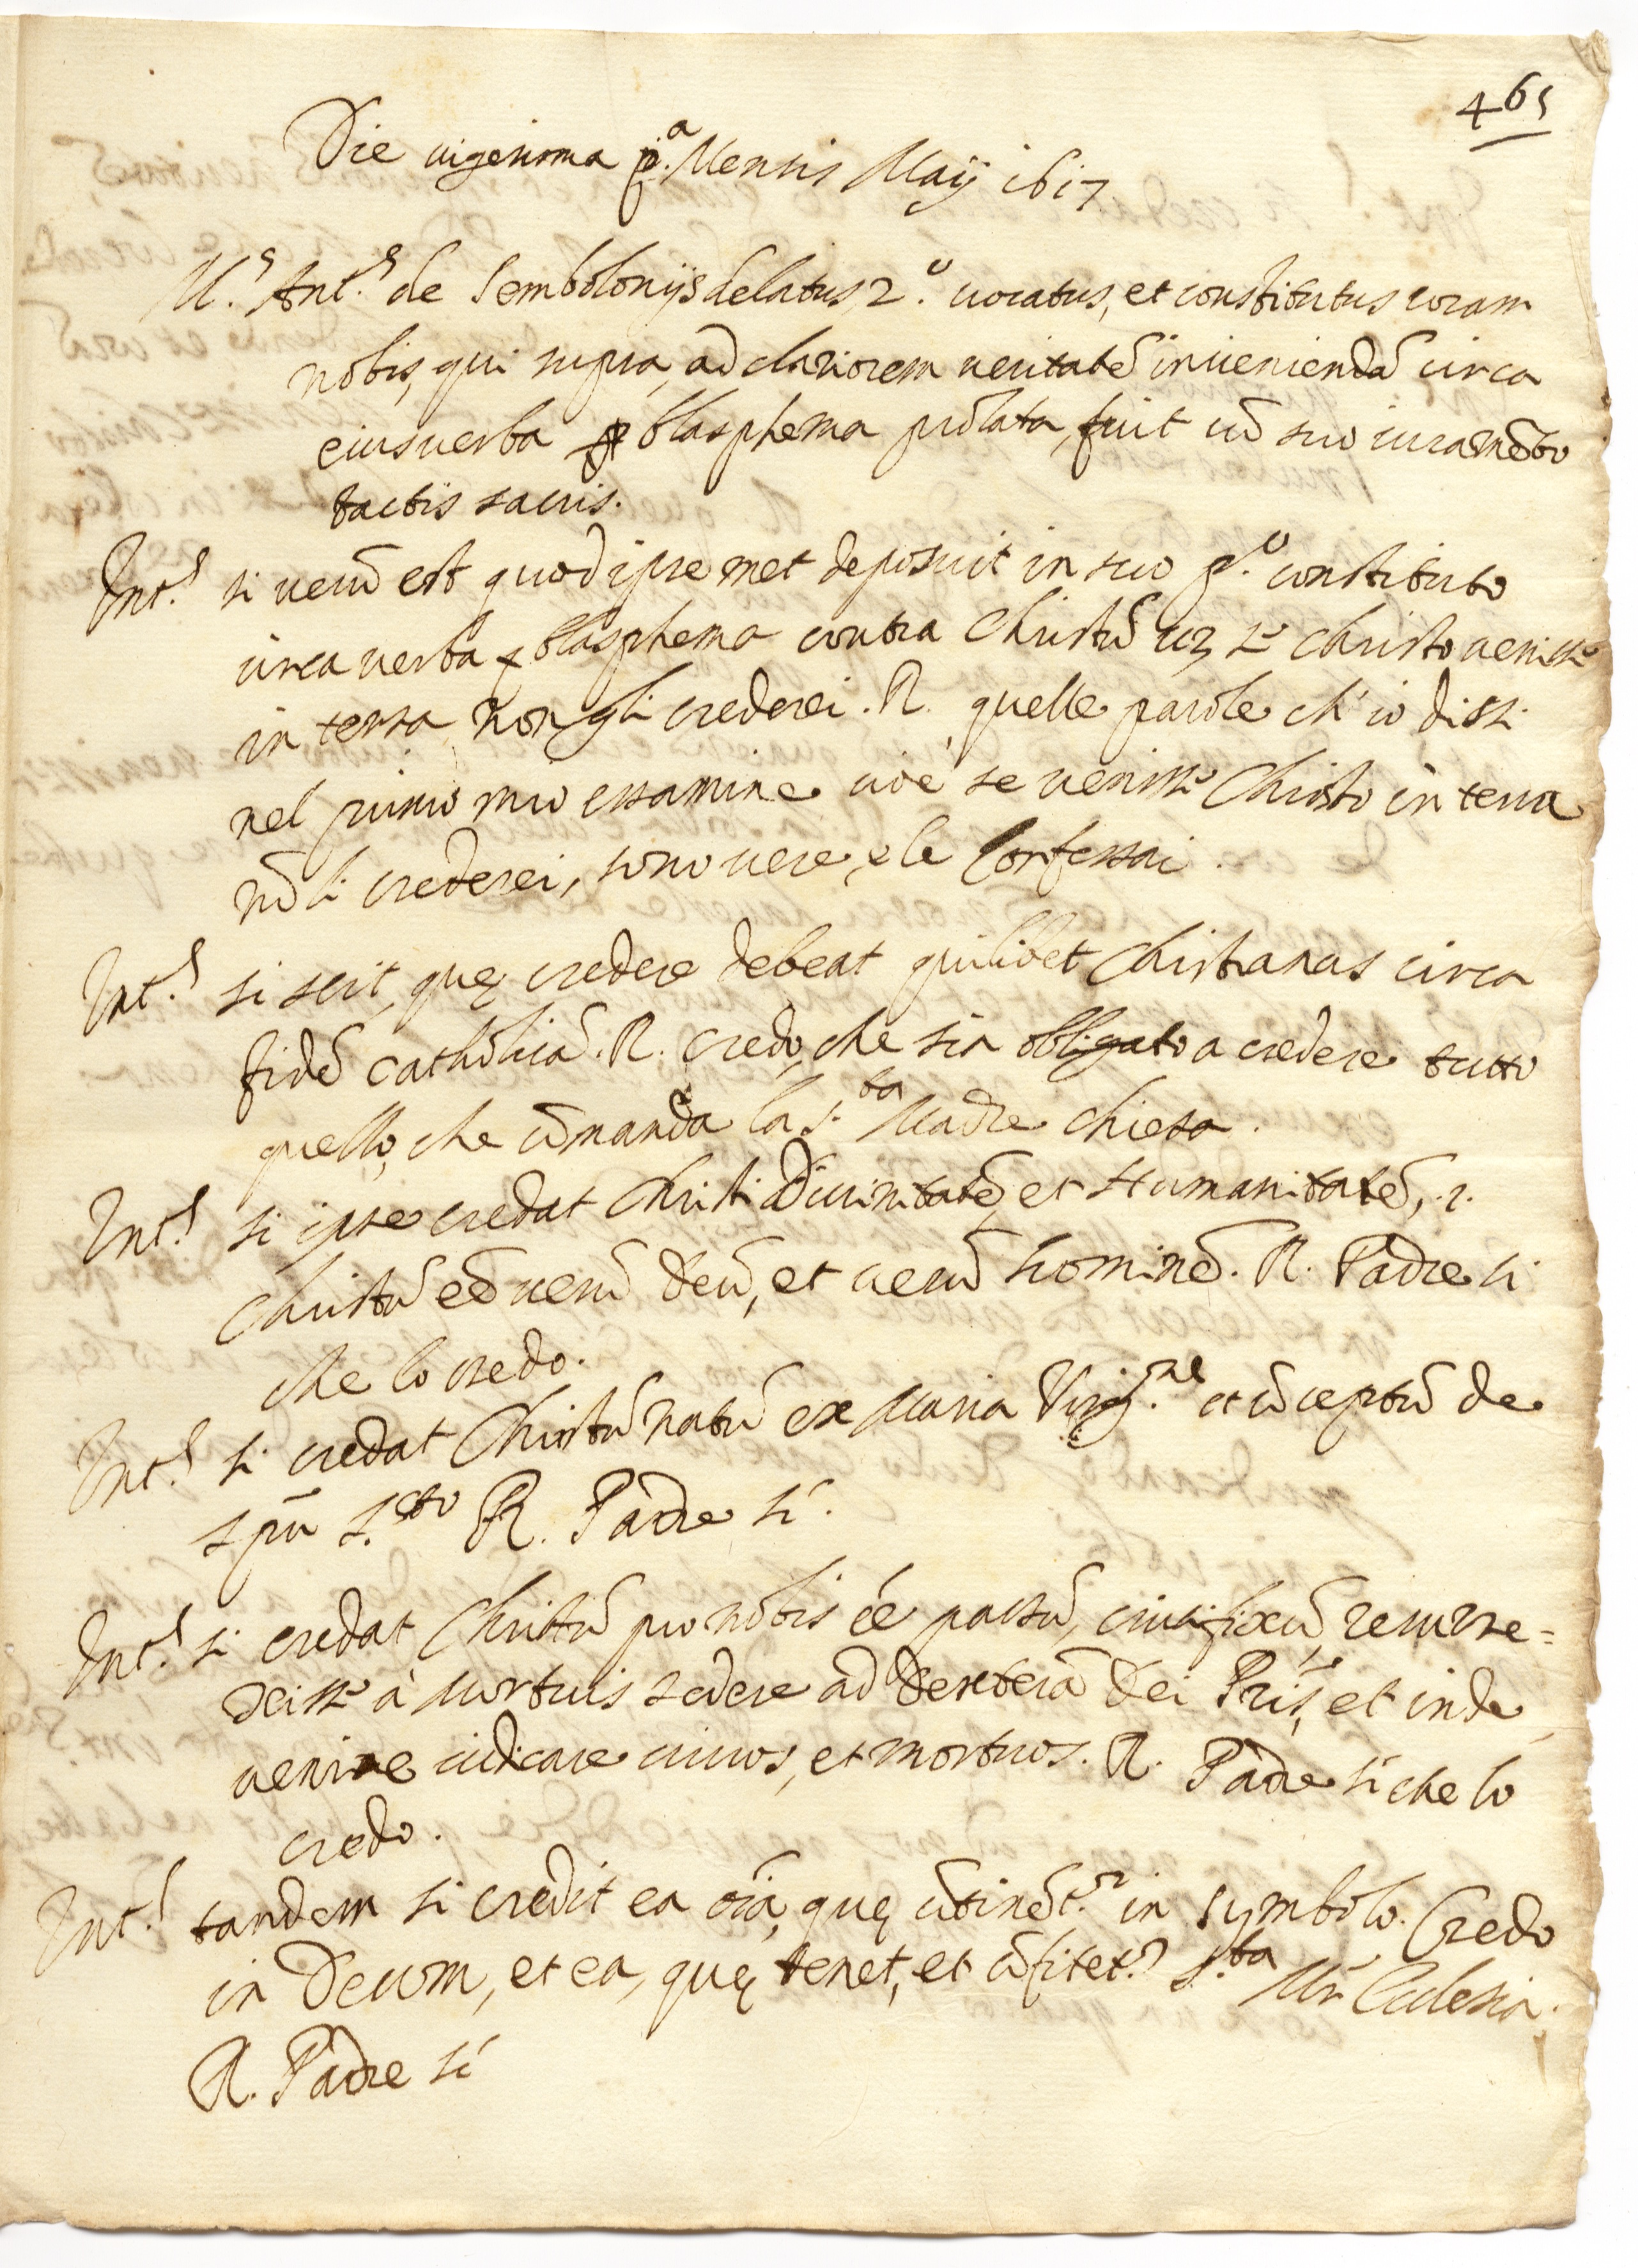 465
Die uigesima p.ª Mensis Maij 1617
M.s Ant.s de Sembolonijs delatus 2.º uocatus, et constitutus coram
nobis, qui supra, ad clariorem ueritatē inueniendā circa
eius uerba blasphema prolata, fuit cū suo iuramēto
tactis sacris.
Int.s si uerū est quod ipse met deposuit in suo p.º constituto
circa uerba blasphema contra Christū uz se Christo uenisse
in terra non gli crederei. R. quelle parole ch'io dissi
nel primo mio essamine cioè se uenisse Christo in terra
nō li crederei, sono uere, e le confessai.
Int.s si scit, quę credere debeat quilibet Christianas circa
fidē catholicā. R. credo, che sia obligato a credere tutto
quello, che cōmanda la S.ta Madre chiesa.
Int.s si ipse credat Christi Diuinitatē, et Humanitatē, .i.
Christū eē uerū Deū, et uerū hominē. R. Padre si
che lo credo.
Int.s si credat Christū natū ex Maria Virg.ne et cōceptū de
spū S.cto R. Padre sì.
Int.s si credat Christū pro nobis eē passū, crucifixū, resurre=
xisse à mortuis sedere ad dexterā Dei Pris, et inde
uenire iudicare uiuos, et mortuos. R. Padre sì che lo
credo.
Int.s tandem si credit ea oīa, quę cōtinēt.r in symbolo. Credo
in Deum, et ea, quę tenet, et cōfitet.r S.ta Mr Eclesia.
R. Padre sì